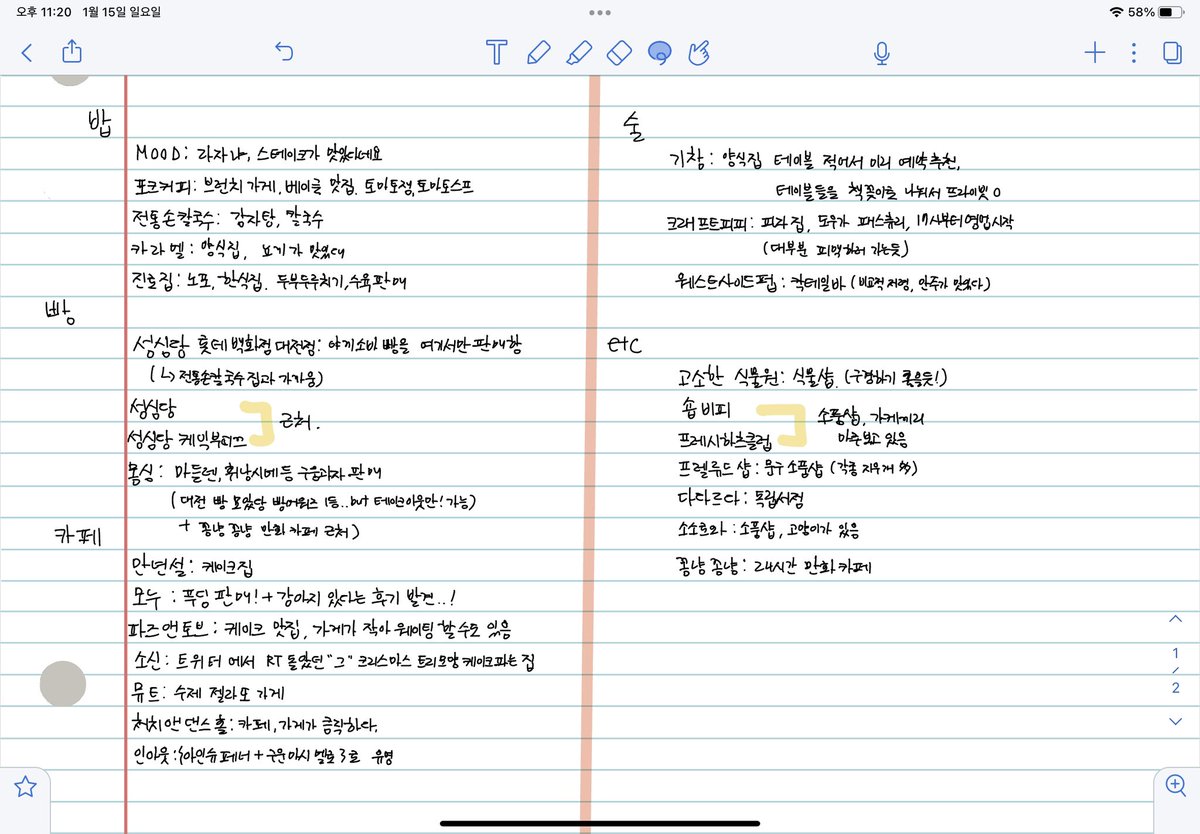 오후 11:20 1월 15일 일요일
58%
밥
MOOD: 라자냐, 스테이크가 맛있다네요
포크커피: 브런치 가게, 베이글 맛집. 토마토점, 토마토스프
전통손칼국수: 감자탕, 칼국수
카라멜: 양식집, 뇨끼가 맛있대
진로집: 노포, 한식집. 두부두루치기, 수육 판매
빵
성심당 롯데백화점 대전점: 야끼소바 빵을 여기서만 판매함
(↳ 전통손칼국수집과 가까움)
성심당
성심당 케익부띠끄
근처.
몽심: 마들렌, 휘낭시에 등 구움과자 판매
(대전 빵 모았당 빵어워즈 1등..but 테이크아웃만! 가능)
+ 꽁냥꽁냥 만화 카페 근처)
카페
만년설: 케이크집
모누: 푸딩 판매! + 강아지 있다는 후기 발견..!
파즈앤토브: 케이크 맛집, 가게가 작아 웨이팅 할 수도 있음
소신: 트위터에서 RT 돌았던 "그" 크리스마스 트리모양 케이크 파는 집
뮤트: 수제 젤라또 가게
처치앤댄스홀: 카페, 가게가 큼직하다.
인아웃: 아인슈페너 + 구운 마시멜로 3로 유명
술
기참: 양식집 테이블 적어서 미리 예약추천,
테이블들을 책꽂이로 나눠서 프라이빗 O
크래프트피피: 피자집, 도우가 패스츄리, 17시부터 영업시작
(대부분 피맥하러 가는듯)
웨스트사이드펍: 칵테일바 (비교적 저렴, 안주가 맛있다)
etc
고소한 식물원: 식물샵. (구경하기 좋을듯!)
숍비피
프레시하츠클럽
소품샵, 가게끼리
마주보고 있음
프렐류드샵: 문구소품샵 (각종 지우개 多)
다다르다: 독립서점
소소호와: 소품샵, 고양이가 있음
꽁냥꽁냥: 24시간 만화카페
1
/
2